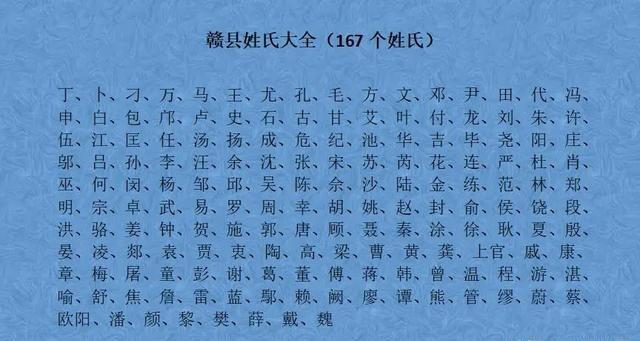 赣县姓氏大全（167 个姓氏）
丁、卜、刁、万、马、王、尤、孔、毛、方、文、邓、尹、田、代、冯、
申、白、包、邝、卢、史、石、古、甘、艾、叶、付、龙、刘、朱、许、
伍、江、匡、任、汤、扬、成、危、纪、池、华、吉、毕、尧、阳、庄、
邬、吕、孙、李、汪、余、沈、张、宋、苏、芮、花、连、严、杜、肖、
巫、何、闵、杨、邹、邱、吴、陈、佘、沙、陆、金、练、范、林、郑、
明、宗、卓、武、易、罗、周、幸、胡、姚、赵、封、俞、侯、饶、段、
洪、骆、姜、钟、贺、施、郭、唐、顾、聂、秦、涂、徐、耿、夏、殷、
晏、凌、郯、袁、贾、衷、陶、高、梁、曹、黄、龚、上官、戚、康、
章、梅、屠、童、彭、谢、葛、董、傅、蒋、韩、曾、温、程、游、湛、
喻、舒、焦、詹、雷、蓝、鄢、赖、阙、廖、谭、熊、管、缪、蔚、蔡、
欧阳、潘、颜、黎、樊、薛、戴、魏